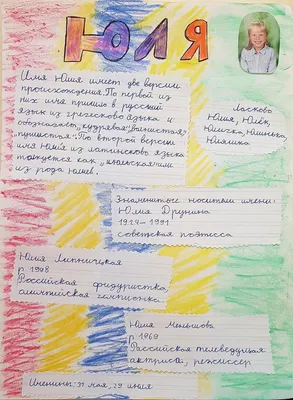 ЮЛЯ
Имя Юлия имеет две версии
происхождения. По первой из
них имя пришло в русский
язык из греческого языка и
обозначает „кудрявая", „волнистая",
„пушистая". По второй версии
имя Юлия из латинского языка
толкуется как „июльская" или
из рода Юлиев.
Ласково
Юля, Юлёк,
Юлечка, Юленька,
Юляшка
Знаменитые носители имени:
Юлия Друнина
1924-1991
советская поэтесса
Юлия Липницкая
р. 1998
Российская фигуристка,
олимпийская чемпионка
Юлия Меньшова
р. 1969
Российская телеведущая
актриса, режиссер
Именины: 31 мая, 29 июля